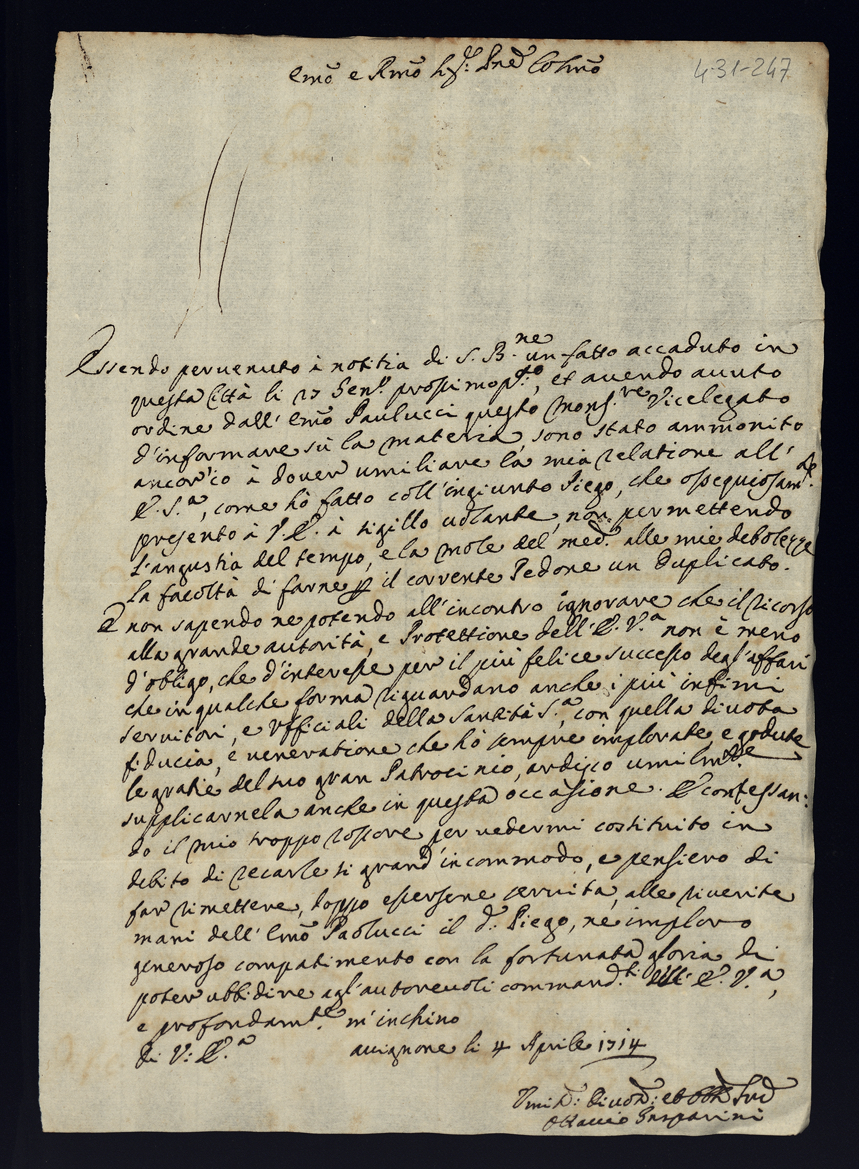 Emõ e Rmõ Sig.r Pne Colmõ
431-247
Essendo pervenuto à notitia di S. B.ne un fatto accaduto in
questa Città li 27 Gen.o prossimo p.to, et avendo avuto
ordine dall' Emõ Paulucci questo Mons.re Vicelegato
d'informare sù la materia, sono stato ammonito
ancor'io à dover umiliare la mia relatione all'
E. S.a, come hò fatto coll'ingiunto Piego, che ossequiosam.te
presento à V. E. à sigillo volante, non permettendo
l'angustia del tempo, e la mole del med.o alle mie debolezze
la facoltà di farne p il corrente Pedone un duplicato.
E non sapendo ne potendo all'incontro ignorare che il ricorso
alla grande autorità, e Protettione dell'E. V.a non è meno
d'obligo, che d'interesse per il più felice successo degl'affari
che in qualche forma riguardano anche i più infimi
servitori, e Ufficiali della Santità S.a, con quella divota
fiducia, e veneratione che hò sempre implorate, e godute
le gratie del suo gran Patrocinio, ardisco umilm.te
supplicarnela anche in questa occasione. E confessan:
do il mio troppo rossore per vedermi costituito in
debito di recarle sì grand'incommodo, e pensiero di
far rimettere, doppo essersene servita, alle riverite
mani dell' Emõ Paolucci il d.o Piego, ne imploro
generoso compatimento con la fortunata gloria di
poter ubbidire agl'autorevoli command.ti dell' E. V.a,
e profondam.te m'inchino
Di V. E.a
Avignone li 4 Aprile 1714
Umil.o: Divot.o: et Obb.o Ser.e
Ottavio Gasparini